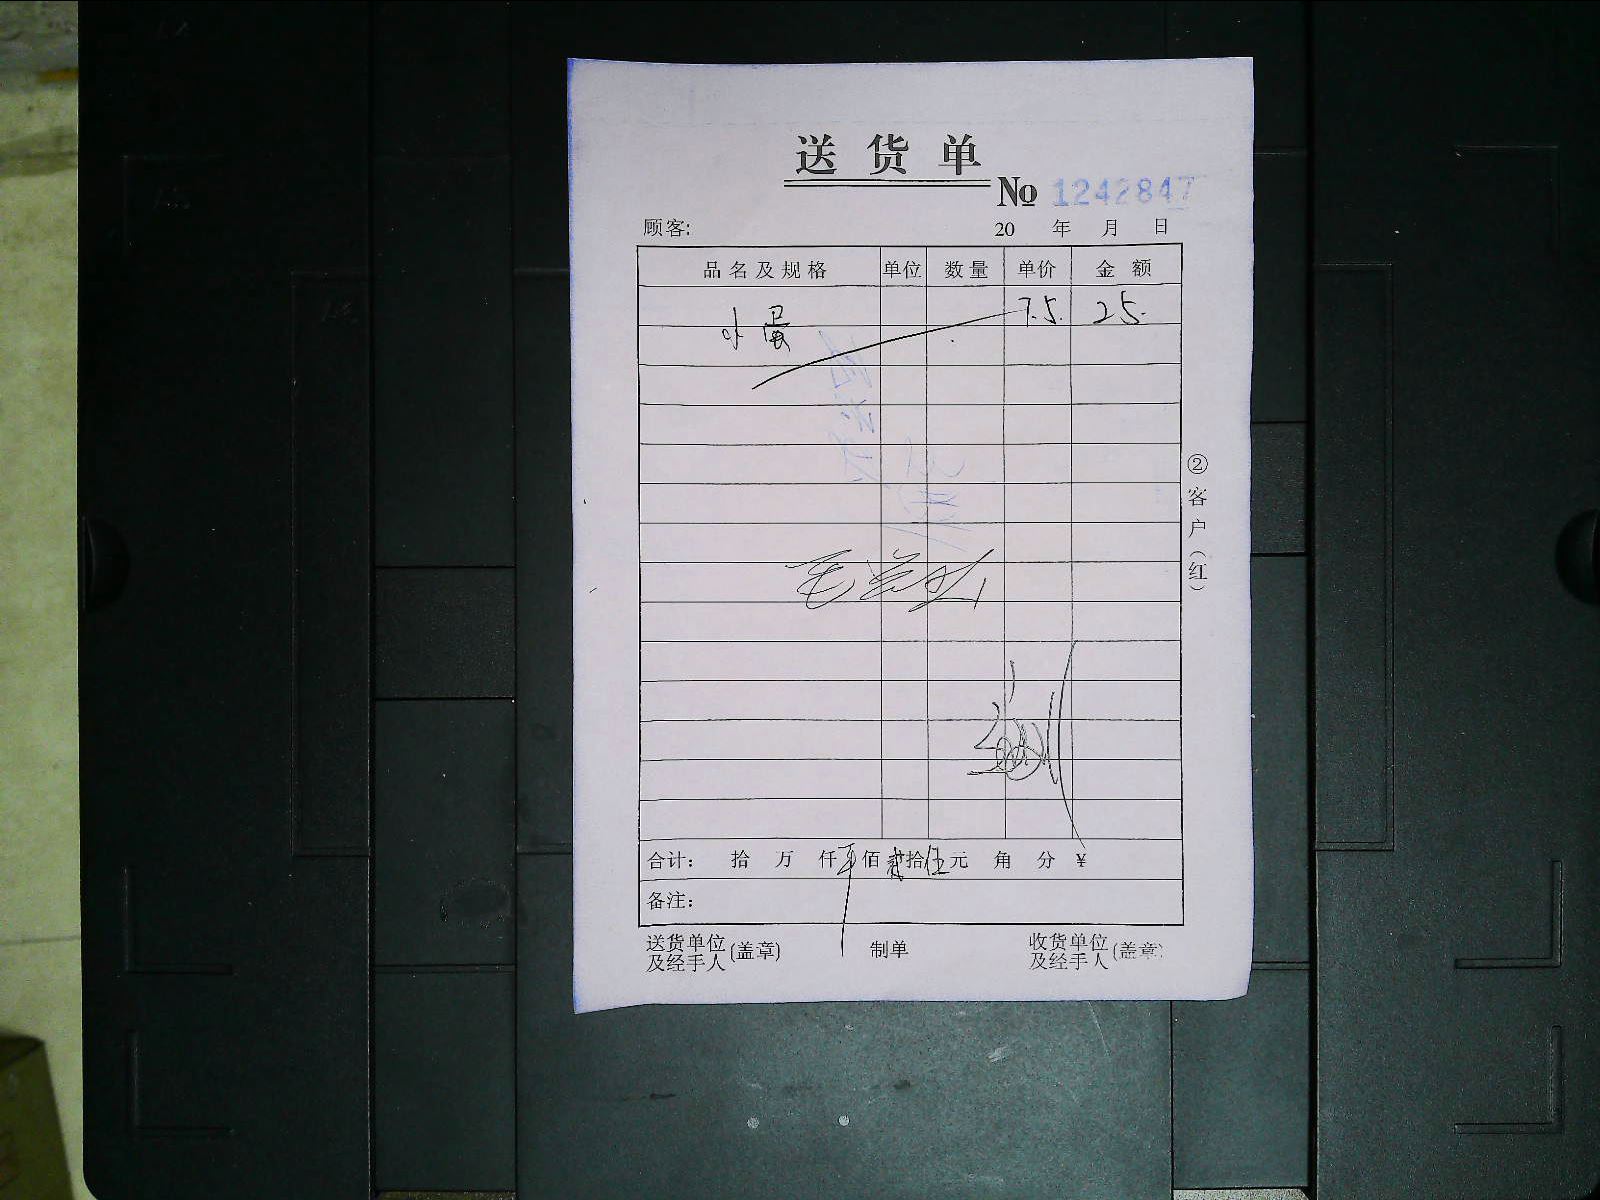 送货单
№ 1242847
顾客: 20 年 月 日
品名及规格 单位 数量 单价 金额
小蛋 7.5. 25.
②客户(红)
合计: 拾 万 仟 佰 贰拾伍元 角 分 ¥
备注:
送货单位及经手人(盖章) 制单 收货单位及经手人(盖章)